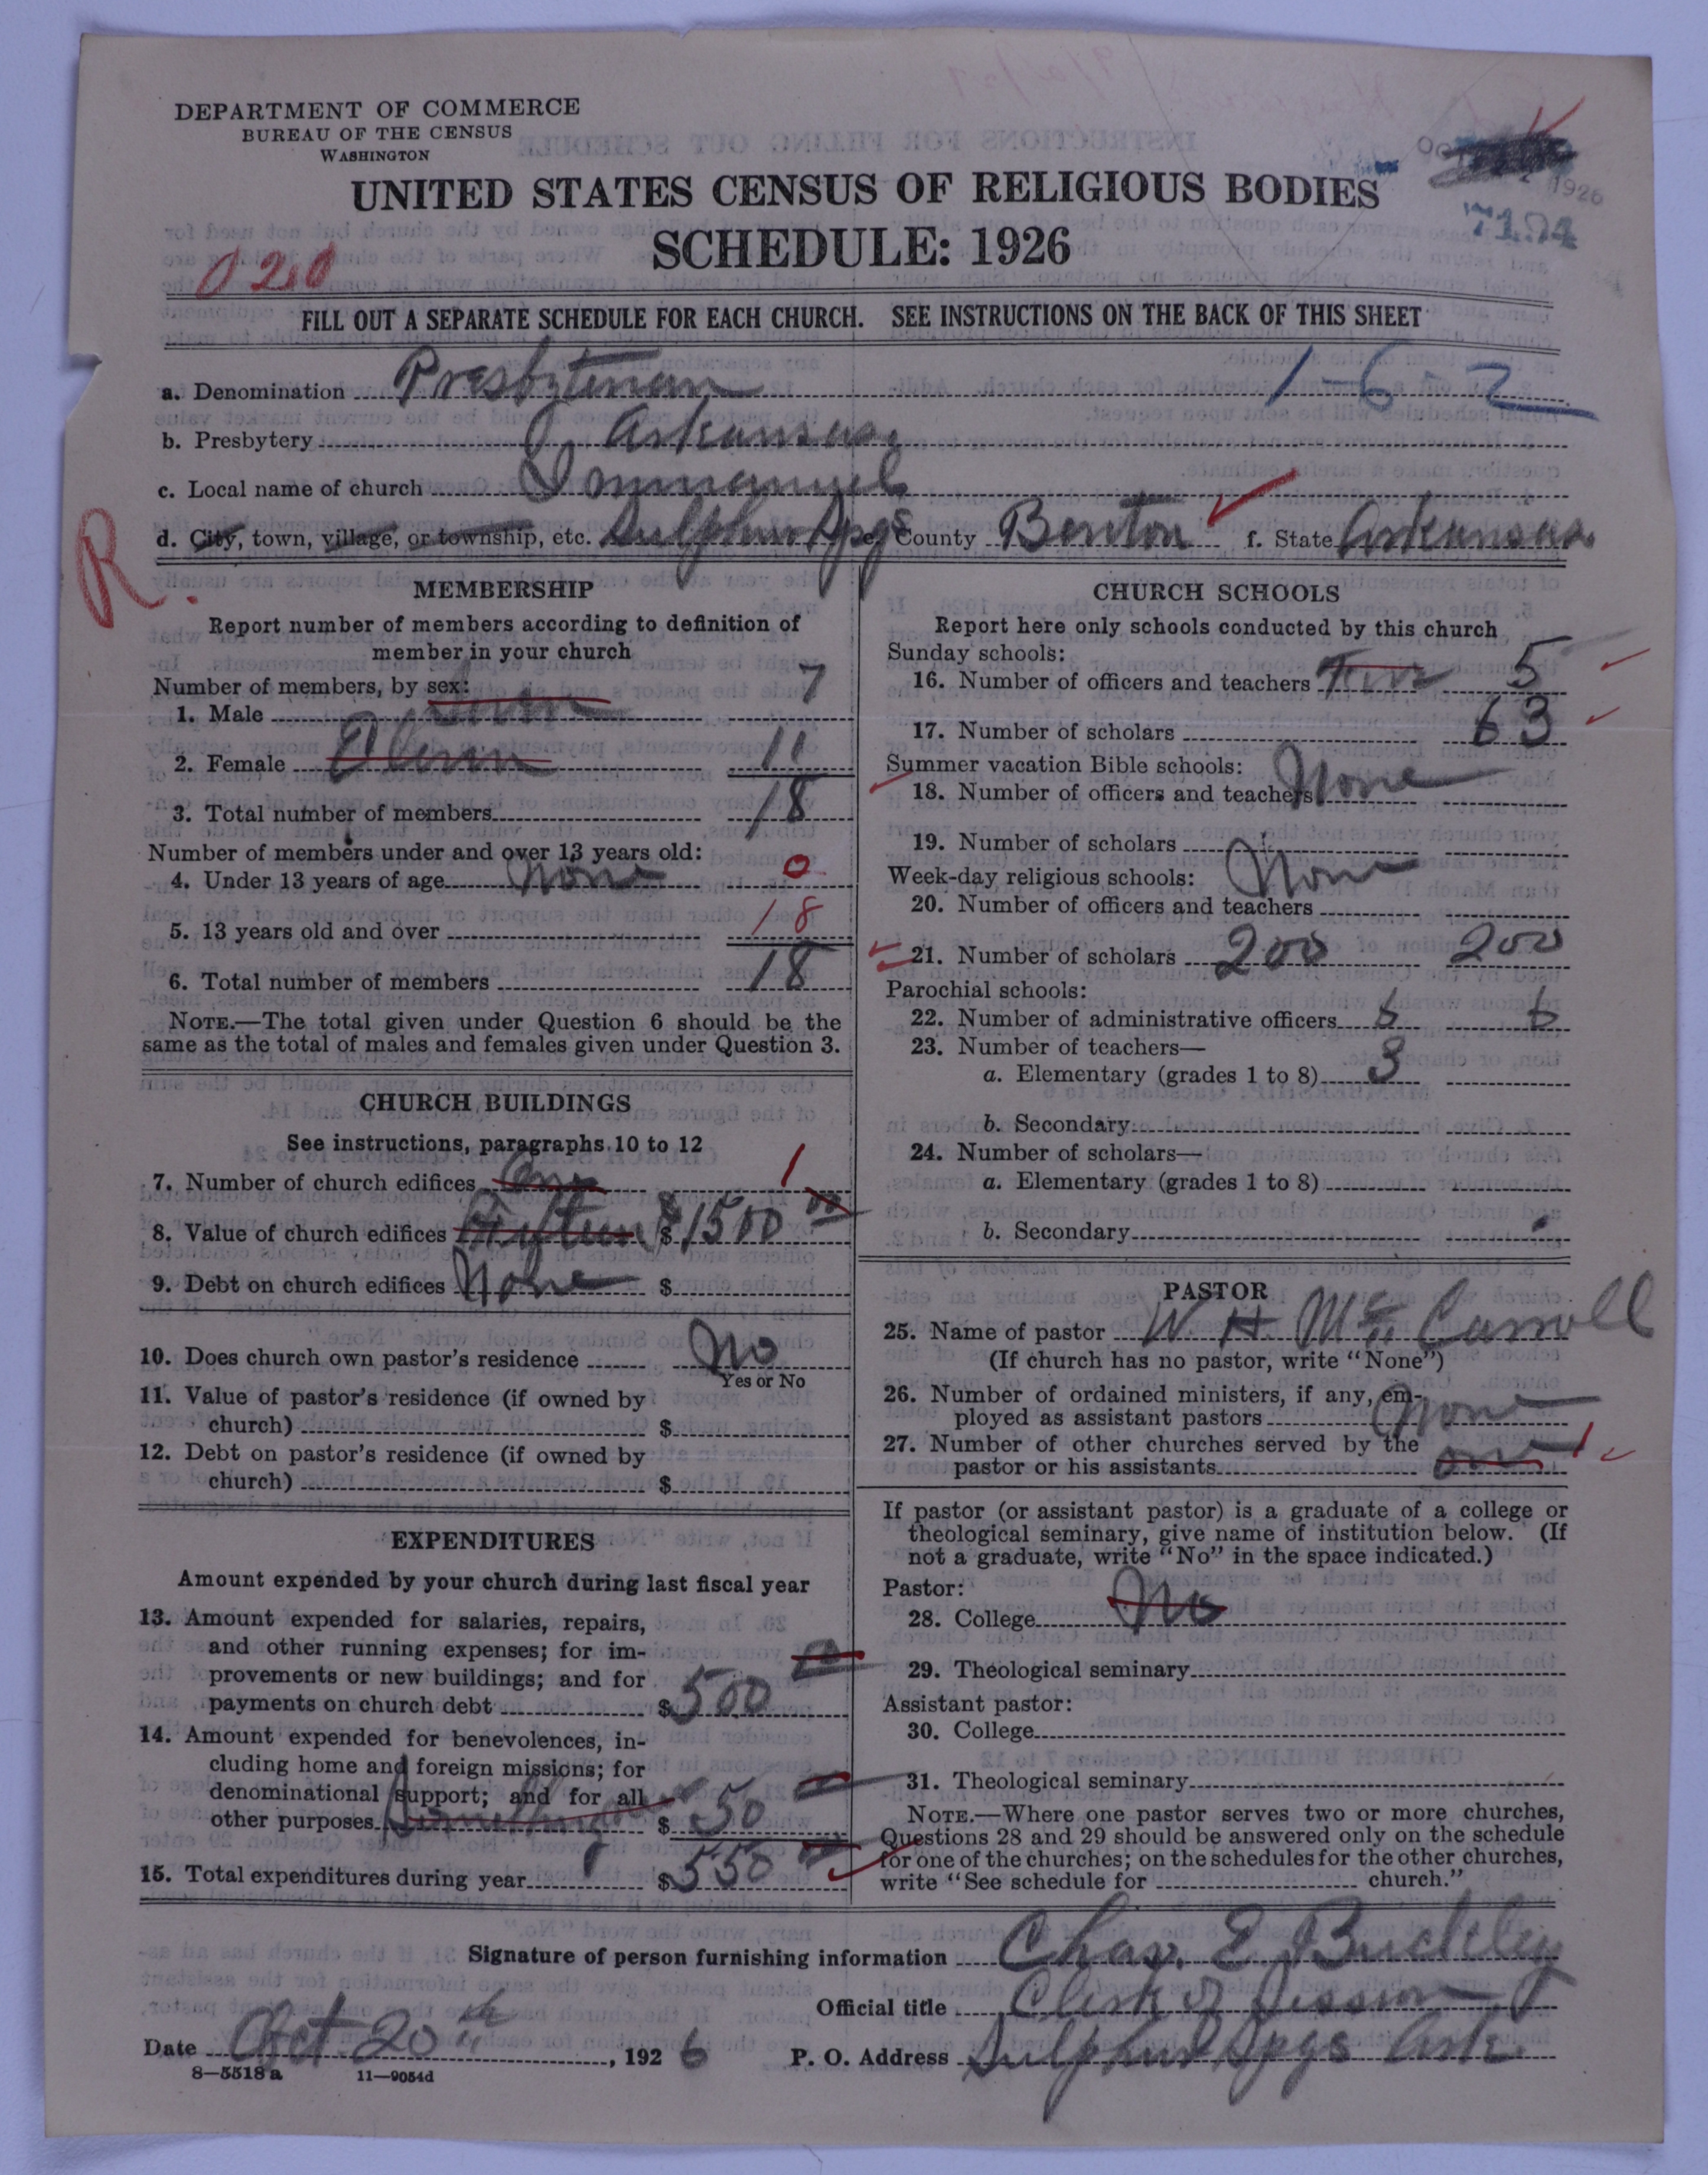 DEPARTMENT OF COMMERCE
BUREAU OF THE CENSUS
WASHINGTON
UNITED STATES CENSUS OF RELIGIOUS BODIES
SCHEDULE: 1926
1926
7194
020
FILL OUT A SEPARATE SCHEDULE FOR EACH CHURCH. SEE INSTRUCTIONS ON THE BACK OF THIS SHEET
a. Denomination Presbyterian 1-6-2
b. Presbytery Arkansas
c. Local name of church Immanuel
d. City, town, village, or township, etc. Sulphur Spgs e. County Benton f. State Arkansas
R.
MEMBERSHIP
Report number of members according to definition of
member in your church
Number of members, by sex:
1. Male Seven 7
2. Female Eleven 11
3. Total number of members 18
Number of members under and over 13 years old:
4. Under 13 years of age None 0
5. 13 years old and over 18
6. Total number of members 18
NOTE.—The total given under Question 6 should be the
same as the total of males and females given under Question 3.
CHURCH BUILDINGS
See instructions, paragraphs 10 to 12
7. Number of church edifices One 1
8. Value of church edifices Fifteen $1500 00
9. Debt on church edifices None $
10. Does church own pastor's residence No
Yes or No
11. Value of pastor's residence (if owned by
church) $
12. Debt on pastor's residence (if owned by
church) $
EXPENDITURES
Amount expended by your church during last fiscal year
13. Amount expended for salaries, repairs,
and other running expenses; for im-
provements or new buildings; and for
payments on church debt $500 00
14. Amount expended for benevolences, in-
cluding home and foreign missions; for
denominational support; and for all
other purposes Something $ 50
15. Total expenditures during year $550
CHURCH SCHOOLS
Report here only schools conducted by this church
Sunday schools:
16. Number of officers and teachers Five 5
17. Number of scholars 63
Summer vacation Bible schools:
18. Number of officers and teachers None
19. Number of scholars
Week-day religious schools: None
20. Number of officers and teachers
21. Number of scholars 200 200
Parochial schools:
22. Number of administrative officers 6 6
23. Number of teachers—
a. Elementary (grades 1 to 8) 3
b. Secondary
24. Number of scholars—
a. Elementary (grades 1 to 8)
b. Secondary
PASTOR
25. Name of pastor W. H. McCarroll
(If church has no pastor, write "None")
26. Number of ordained ministers, if any, em-
ployed as assistant pastors None
27. Number of other churches served by the
pastor or his assistants one 1
If pastor (or assistant pastor) is a graduate of a college or
theological seminary, give name of institution below. (If
not a graduate, write "No" in the space indicated.)
Pastor:
28. College No
29. Theological seminary
Assistant pastor:
30. College
31. Theological seminary
NOTE.—Where one pastor serves two or more churches,
Questions 28 and 29 should be answered only on the schedule
for one of the churches; on the schedules for the other churches,
write "See schedule for church."
Signature of person furnishing information Chas. E Buckley
Official title Clerk of Session
Date Oct 20th, 1926 P. O. Address Sulphur Spgs Ark.
8—5518a 11—9054d